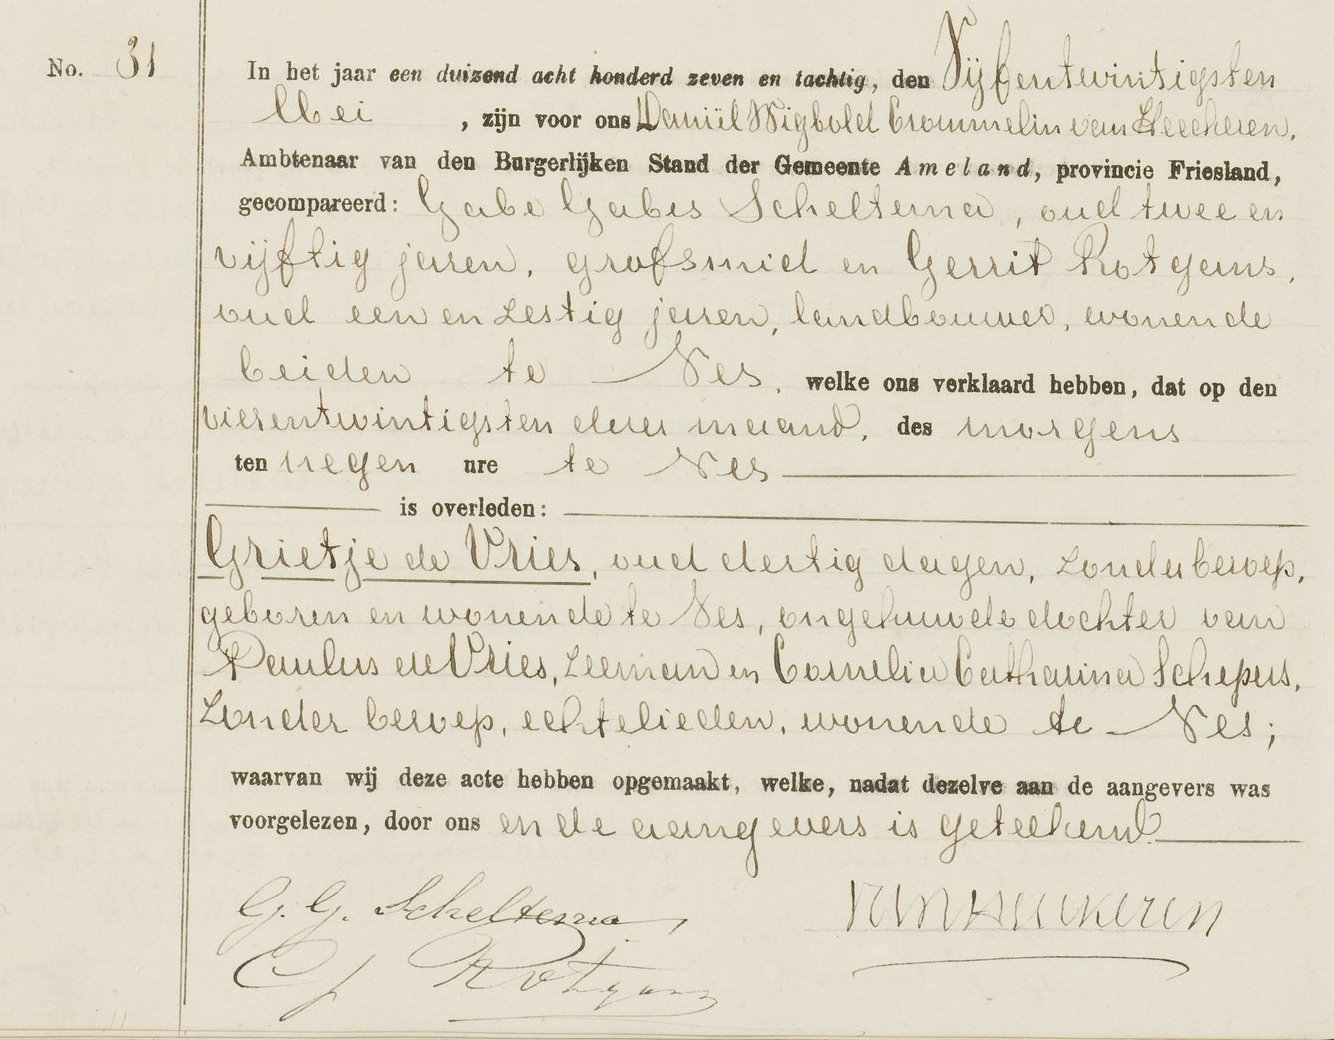 No. 31
In het jaar een duizend acht honderd zeven en tachtig, den Vijfentwintigsten
Mei, zijn voor ons Daniël Wigbold Crommelin van Heeckeren,
Ambtenaar van den Burgerlijken Stand der Gemeente Ameland, provincie Friesland,
gecompareerd: Gabe Gabes Scheltema, oud twee en
vijftig jaren, grofsmid en Gerrit Rotgans,
oud een en zestig jaren, landbouwer, wonende
beiden te Nes, welke ons verklaard hebben, dat op den
vierentwintigsten dezer maand, des morgens
ten negen ure te Nes
is overleden:
Grietje de Vries, oud dertig dagen, zonder beroep,
geboren en wonende te Nes, ongehuwde dochter van
Paulus de Vries, zeeman en Cornelia Catharina Schepers,
zonder beroep, echtelieden, wonende te Nes;
waarvan wij deze acte hebben opgemaakt, welke, nadat dezelve aan de aangevers was
voorgelezen, door ons en de aangevers is geteekend.
G. G. Scheltema
VanHeeckeren
G Rotgans